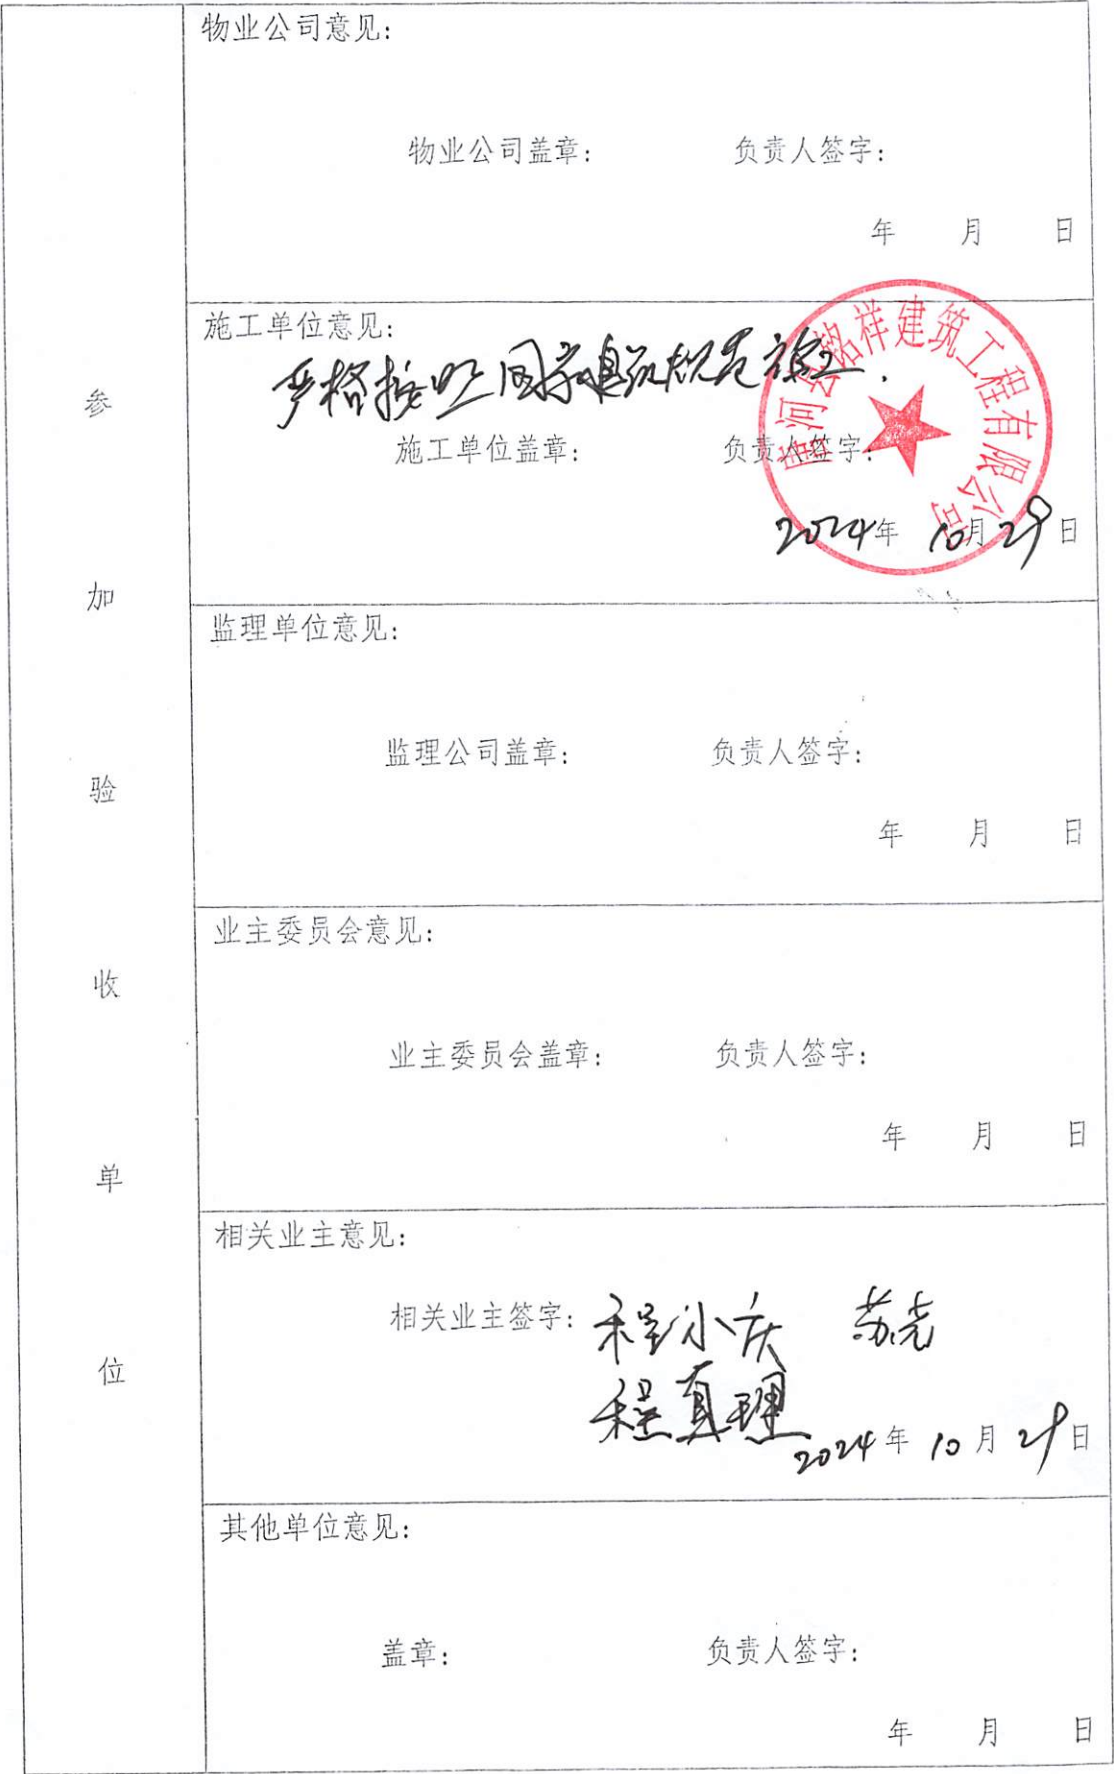 参加验收单位
物业公司意见:
物业公司盖章: 负责人签字:
年 月 日
施工单位意见:
严格按照国家建筑规范施工.
施工单位盖章: 负责人签字:
唐河县铭祥建筑工程有限公司
2024年 10月29日
监理单位意见:
监理公司盖章: 负责人签字:
年 月 日
业主委员会意见:
业主委员会盖章: 负责人签字:
年 月 日
相关业主意见:
相关业主签字: 程小庆 苏尧
程真理
2024年 10月29日
其他单位意见:
盖章: 负责人签字:
年 月 日